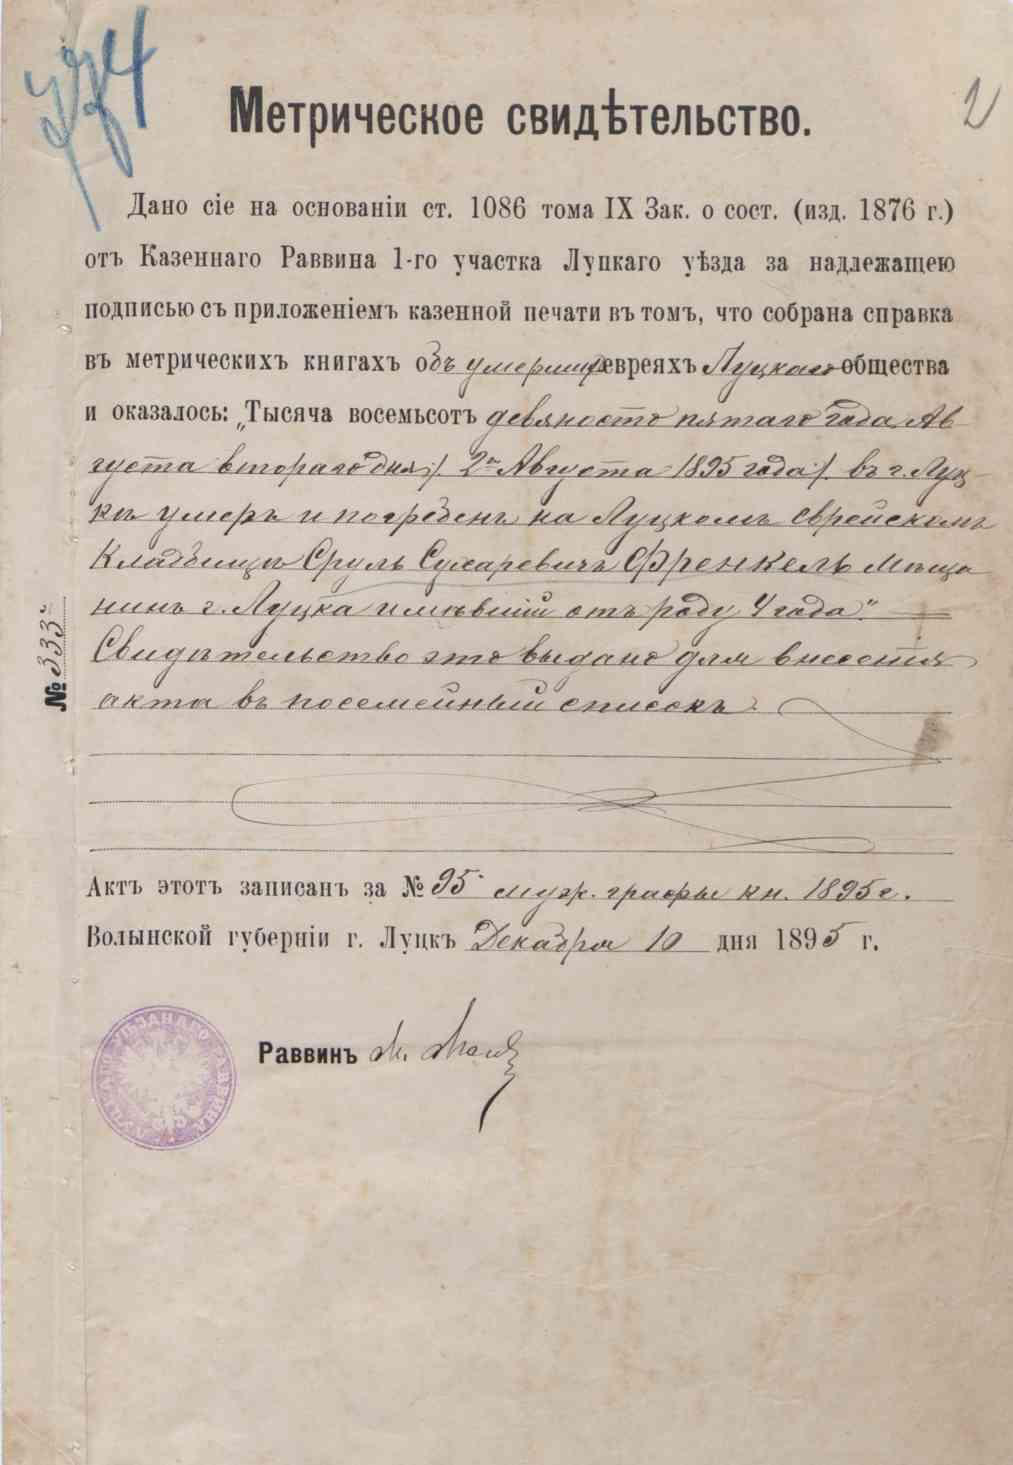 274
2
Метрическое свидѣтельство.
Дано сіе на основаніи ст. 1086 тома IX Зак. о сост. (изд. 1876 г.)
отъ Казеннаго Раввина 1-го участка Луцкаго уѣзда за надлежащею
подписью съ приложеніемъ казенной печати въ томъ, что собрана справка
въ метрическихъ книгахъ объ умершихъ евреяхъ Луцкаго общества
и оказалось: „Тысяча восемьсотъ девяносто пятаго года, Ав-
густа втораго дня /. 2го Августа 1895 года /. въ г. Луц-
кѣ умеръ и погребенъ на Луцкомъ еврейскомъ
Кладбищѣ Сруль Сухаревичъ Френкель мѣща
нинъ г. Луцка имѣвшій отъ роду 4 года".
Свидѣтельство это выдано для внесенія
акта въ посемейный списокъ.
№ 333
Актъ этотъ записанъ за № 95 муж. графы кн. 1895 г.
Волынской губерніи г. Луцкъ Декабря 10 дня 1895 г.
Раввинъ М.